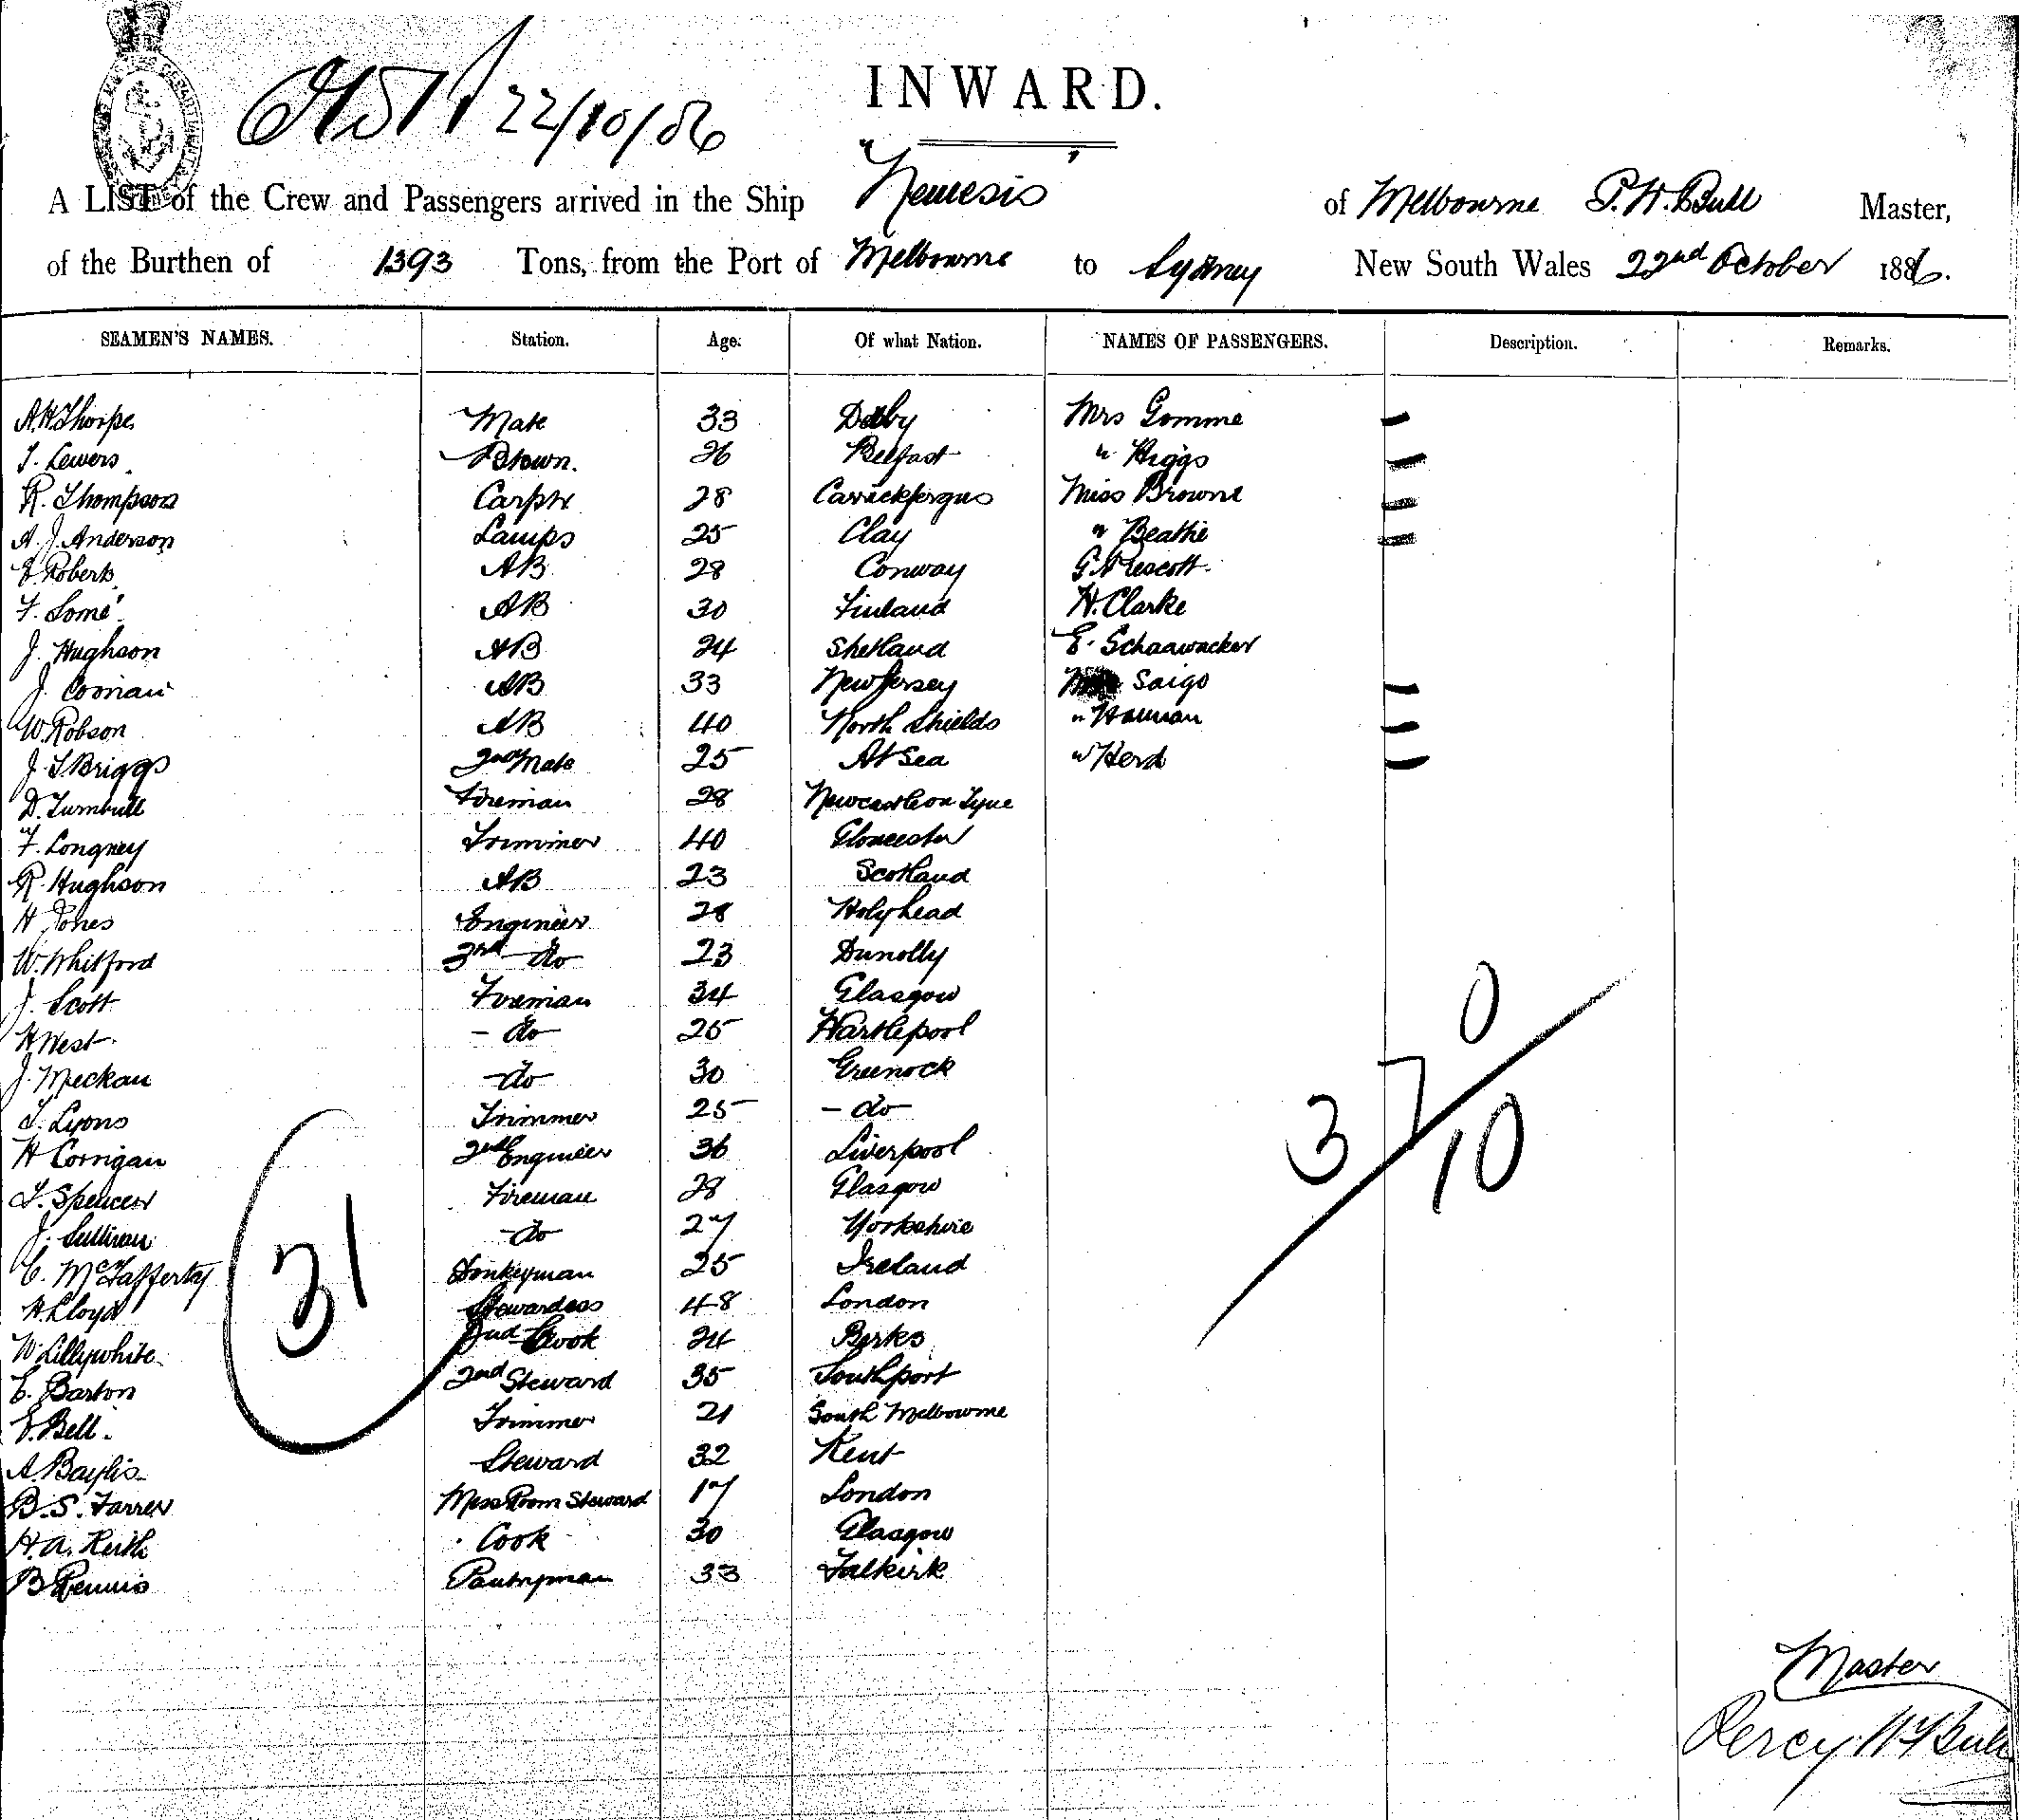 22/10/86
INWARD.
A LIST of the Crew and Passengers arrived in the Ship "Nemesis" of Melbourne P.W. Bull Master,
of the Burthen of 1393 Tons, from the Port of Melbourne to Sydney New South Wales 22nd October 1886.
SEAMEN'S NAMES. Station. Age. Of what Nation. NAMES OF PASSENGERS. Description. Remarks.
A.H Thorpe Mate 33 Derby Mrs Gomme
T. Lewers Btswn. 26 Belfast " Higgs
R. Thompson Carptr 28 Carrickfergus Miss Browne
A. J. Anderson Lamps 25 Clay " Beattie
E. Roberts AB 28 Conway G. Prescott
F. Lomé AB 30 Finland H. Clarke
J. Hughson AB 24 Shetland E. Schaawacker
J. AB 33 New Jersey Saigo
W. Robson AB 40 North Shields " Haman
J. T Briggs 2nd Mate 25 At Sea " Herd
D. Turnbull Fireman 28 Newcastle on Tyne
F. Longney Trimmer 40 Gloucester
R. Hughson AB 23 Scotland
H Jones Engineer 28 Holyhead
W. Whitford 3rd do 23 Dunolly
J. Scott Fireman 34 Glasgow
H West - do 25 Hartlepool
J. Meckan - do 30 Greenock
T. Lyons Trimmer 25 - do
H Corrigan 2nd Engineer 36 Liverpool
T. Spencer Fireman 28 Glasgow
J. Sullivan - do 27 Yorkshire
C. McTafferty Donkeyman 25 Ireland
H. Lloyd Stewardess 48 London
W Lillywhite 2nd Cook 24 Berks
E. Barton 2nd Steward 35 Southport
E. Bell. Trimmer 21 South Melbourne
A. Baylis Steward 32 Kent
B. S. Farrer Mess Room Steward 17 London
H. A. Keith Cook 30 Glasgow
B Rennis Pantryman 33 Falkirk
31
37 0
10
Master
Percy W Bull